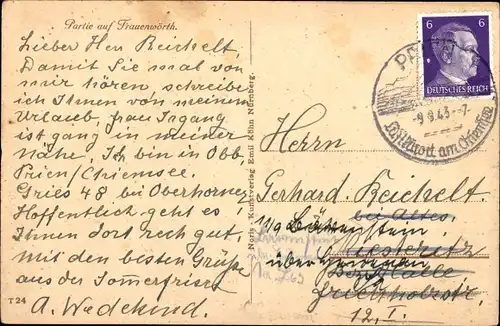 Partie auf Frauenwörth.
Lieber Herr Reichelt.
Damit Sie mal von
mir hören, schreibe
ich Ihnen von meinem
Urlaub, Frau Irgang
ist ganz in meiner
Nähe. Ich bin in Obb
Prien/Chiemsee.
Gries 48 bei Oberhorner
Hoffentlich geht es
Ihnen dort recht gut,
mit den besten Grüße
aus der Sommerfrische
A. Wedekind.
T 24
Noris Kunstverlag Emil Köhn Nürnberg.
6 6
DEUTSCHES REICH
PRIEN
-9.9.43.-7
am Chiemsee
Herrn
Gerhard Reichelt
bei
Bärenstein
Piesteritz
über
12. I.